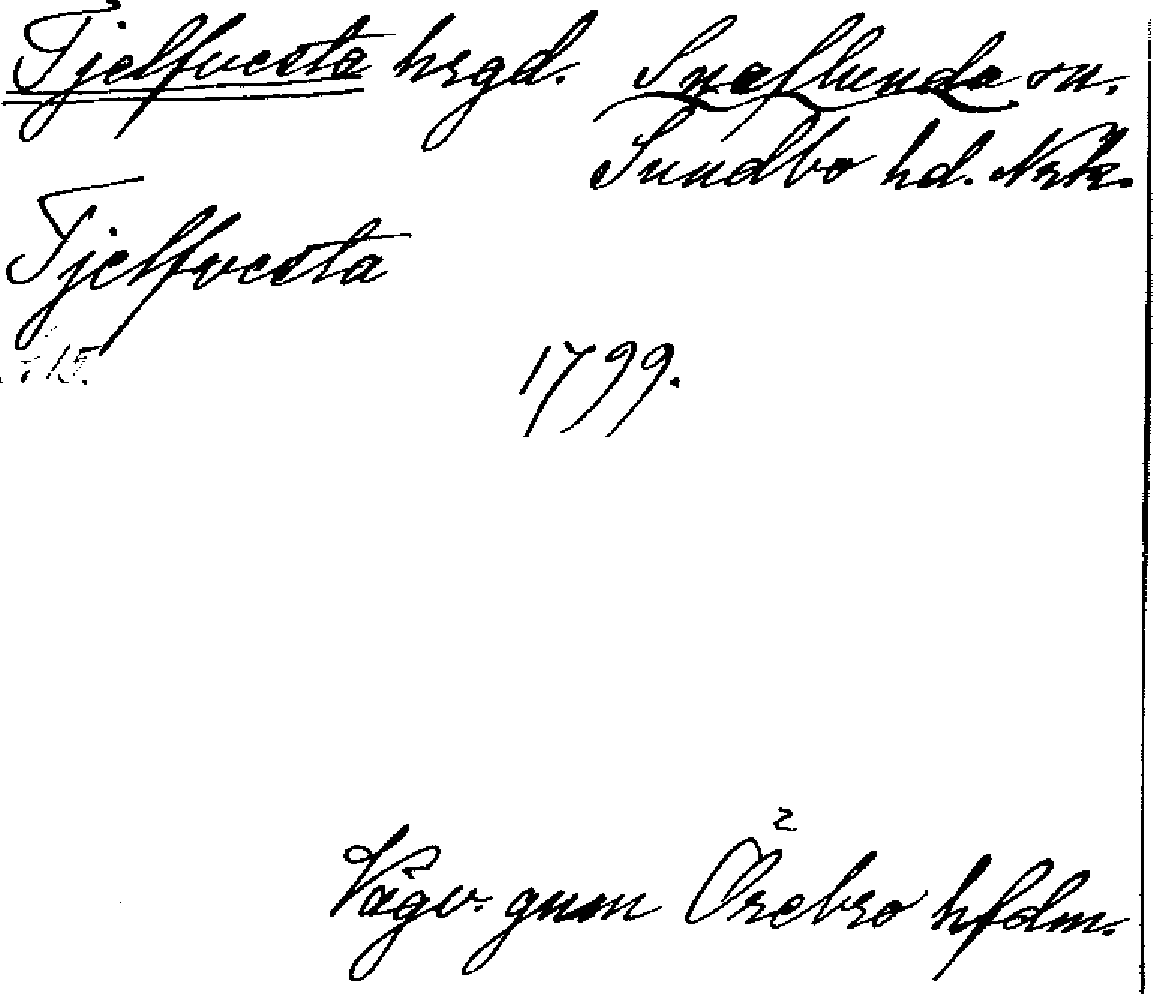 Tjelfvesta hrgd. Snaflunda sn.
Sundbo hd. Nrke.
Tjelfvesta
15.
1799.
Vägv. gnm Örebro hfdm.